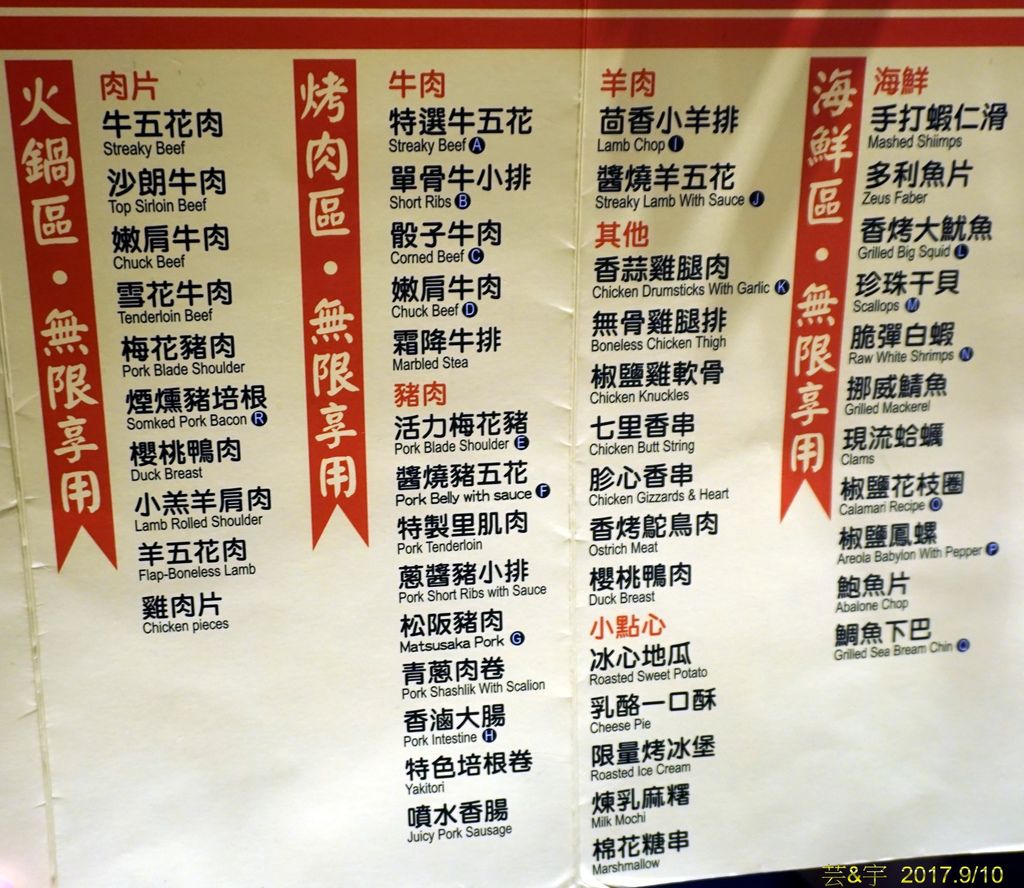 火鍋區・無限享用
肉片
牛五花肉
Streaky Beef
沙朗牛肉
Top Sirloin Beef
嫩肩牛肉
Chuck Beef
雪花牛肉
Tenderloin Beef
梅花豬肉
Pork Blade Shoulder
煙燻豬培根
Somked Pork Bacon R
櫻桃鴨肉
Duck Breast
小羔羊肩肉
Lamb Rolled Shoulder
羊五花肉
Flap-Boneless Lamb
雞肉片
Chicken pieces
烤肉區・無限享用
牛肉
特選牛五花
Streaky Beef A
單骨牛小排
Short Ribs B
骰子牛肉
Corned Beef C
嫩肩牛肉
Chuck Beef D
霜降牛排
Marbled Stea
豬肉
活力梅花豬
Pork Blade Shoulder E
醬燒豬五花
Pork Belly with sauce F
特製里肌肉
Pork Tenderloin
蔥醬豬小排
Pork Short Ribs with Sauce
松阪豬肉
Matsusaka Pork G
青蔥肉卷
Pork Shashlik With Scalion
香滷大腸
Pork Intestine H
特色培根卷
Yakitori
噴水香腸
Juicy Pork Sausage
羊肉
茴香小羊排
Lamb Chop I
醬燒羊五花
Streaky Lamb With Sauce J
其他
香蒜雞腿肉
Chicken Drumsticks With Garlic K
無骨雞腿排
Boneless Chicken Thigh
椒鹽雞軟骨
Chicken Knuckles
七里香串
Chicken Butt String
胗心香串
Chicken Gizzards & Heart
香烤鴕鳥肉
Ostrich Meat
櫻桃鴨肉
Duck Breast
小點心
冰心地瓜
Roasted Sweet Potato
乳酪一口酥
Cheese Pie
限量烤冰堡
Roasted Ice Cream
煉乳麻糬
Milk Mochi
棉花糖串
Marshmallow
海鮮區・無限享用
海鮮
手打蝦仁滑
Mashed Shiimps
多利魚片
Zeus Faber
香烤大魷魚
Grilled Big Squid L
珍珠干貝
Scallops M
脆彈白蝦
Raw White Shrimps N
挪威鯖魚
Grilled Mackerel
現流蛤蠣
Clams
椒鹽花枝圈
Calamari Recipe O
椒鹽鳳螺
Areola Babylon With Pepper P
鮑魚片
Abalone Chop
鯛魚下巴
Grilled Sea Bream Chin Q
芸&宇 2017.9/10